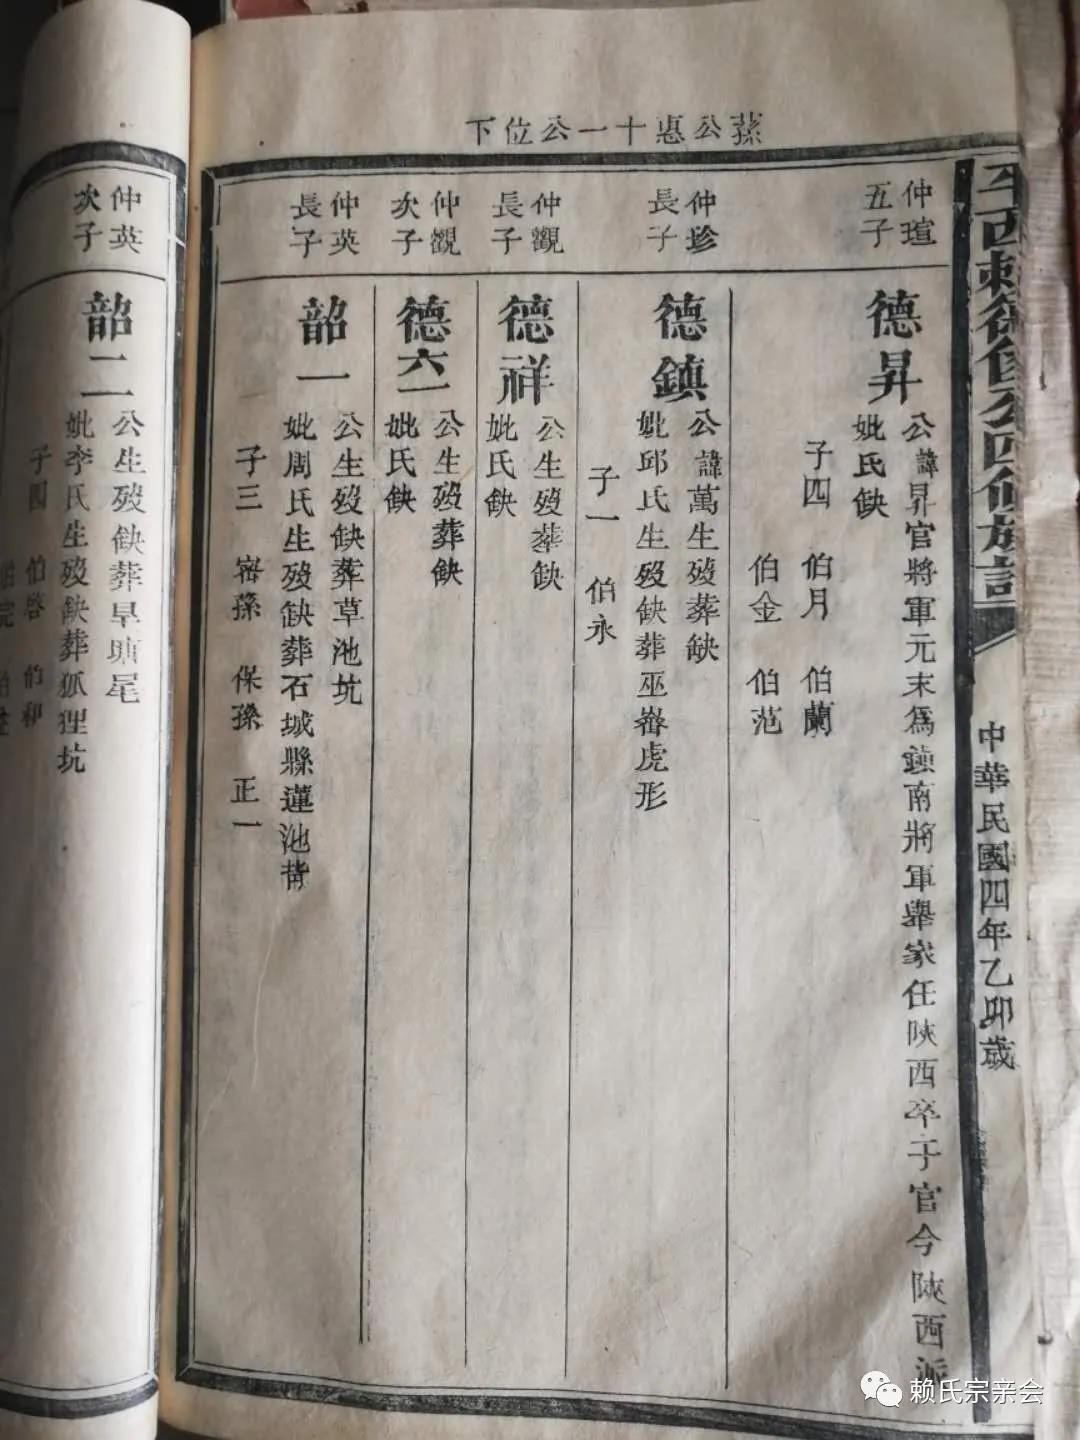 蓀公惠十一公位下
中華民國四年乙卯歲
仲瑄
五子
德昇
公諱昇官將軍元末為鎮南將軍舉家任陜西卒于官今陜西派
妣氏缺
子四 伯月 伯蘭
伯金 伯范
仲珍
長子
德鎮
公諱萬生歿葬缺
妣邱氏生歿缺葬巫峇虎形
子一 伯永
仲觀
長子
德祥
公生歿葬缺
妣氏缺
仲觀
次子
德六
公生歿葬缺
妣氏缺
仲英
長子
韶一
公生歿缺葬草池坑
妣周氏生歿缺葬石城縣蓮池背
子三 寄孫 保孫 正一
仲英
次子
韶二
公生歿缺葬旱塘尾
妣李氏生歿缺葬狐狸坑
子四 伯啓 伯和
赖氏宗亲会